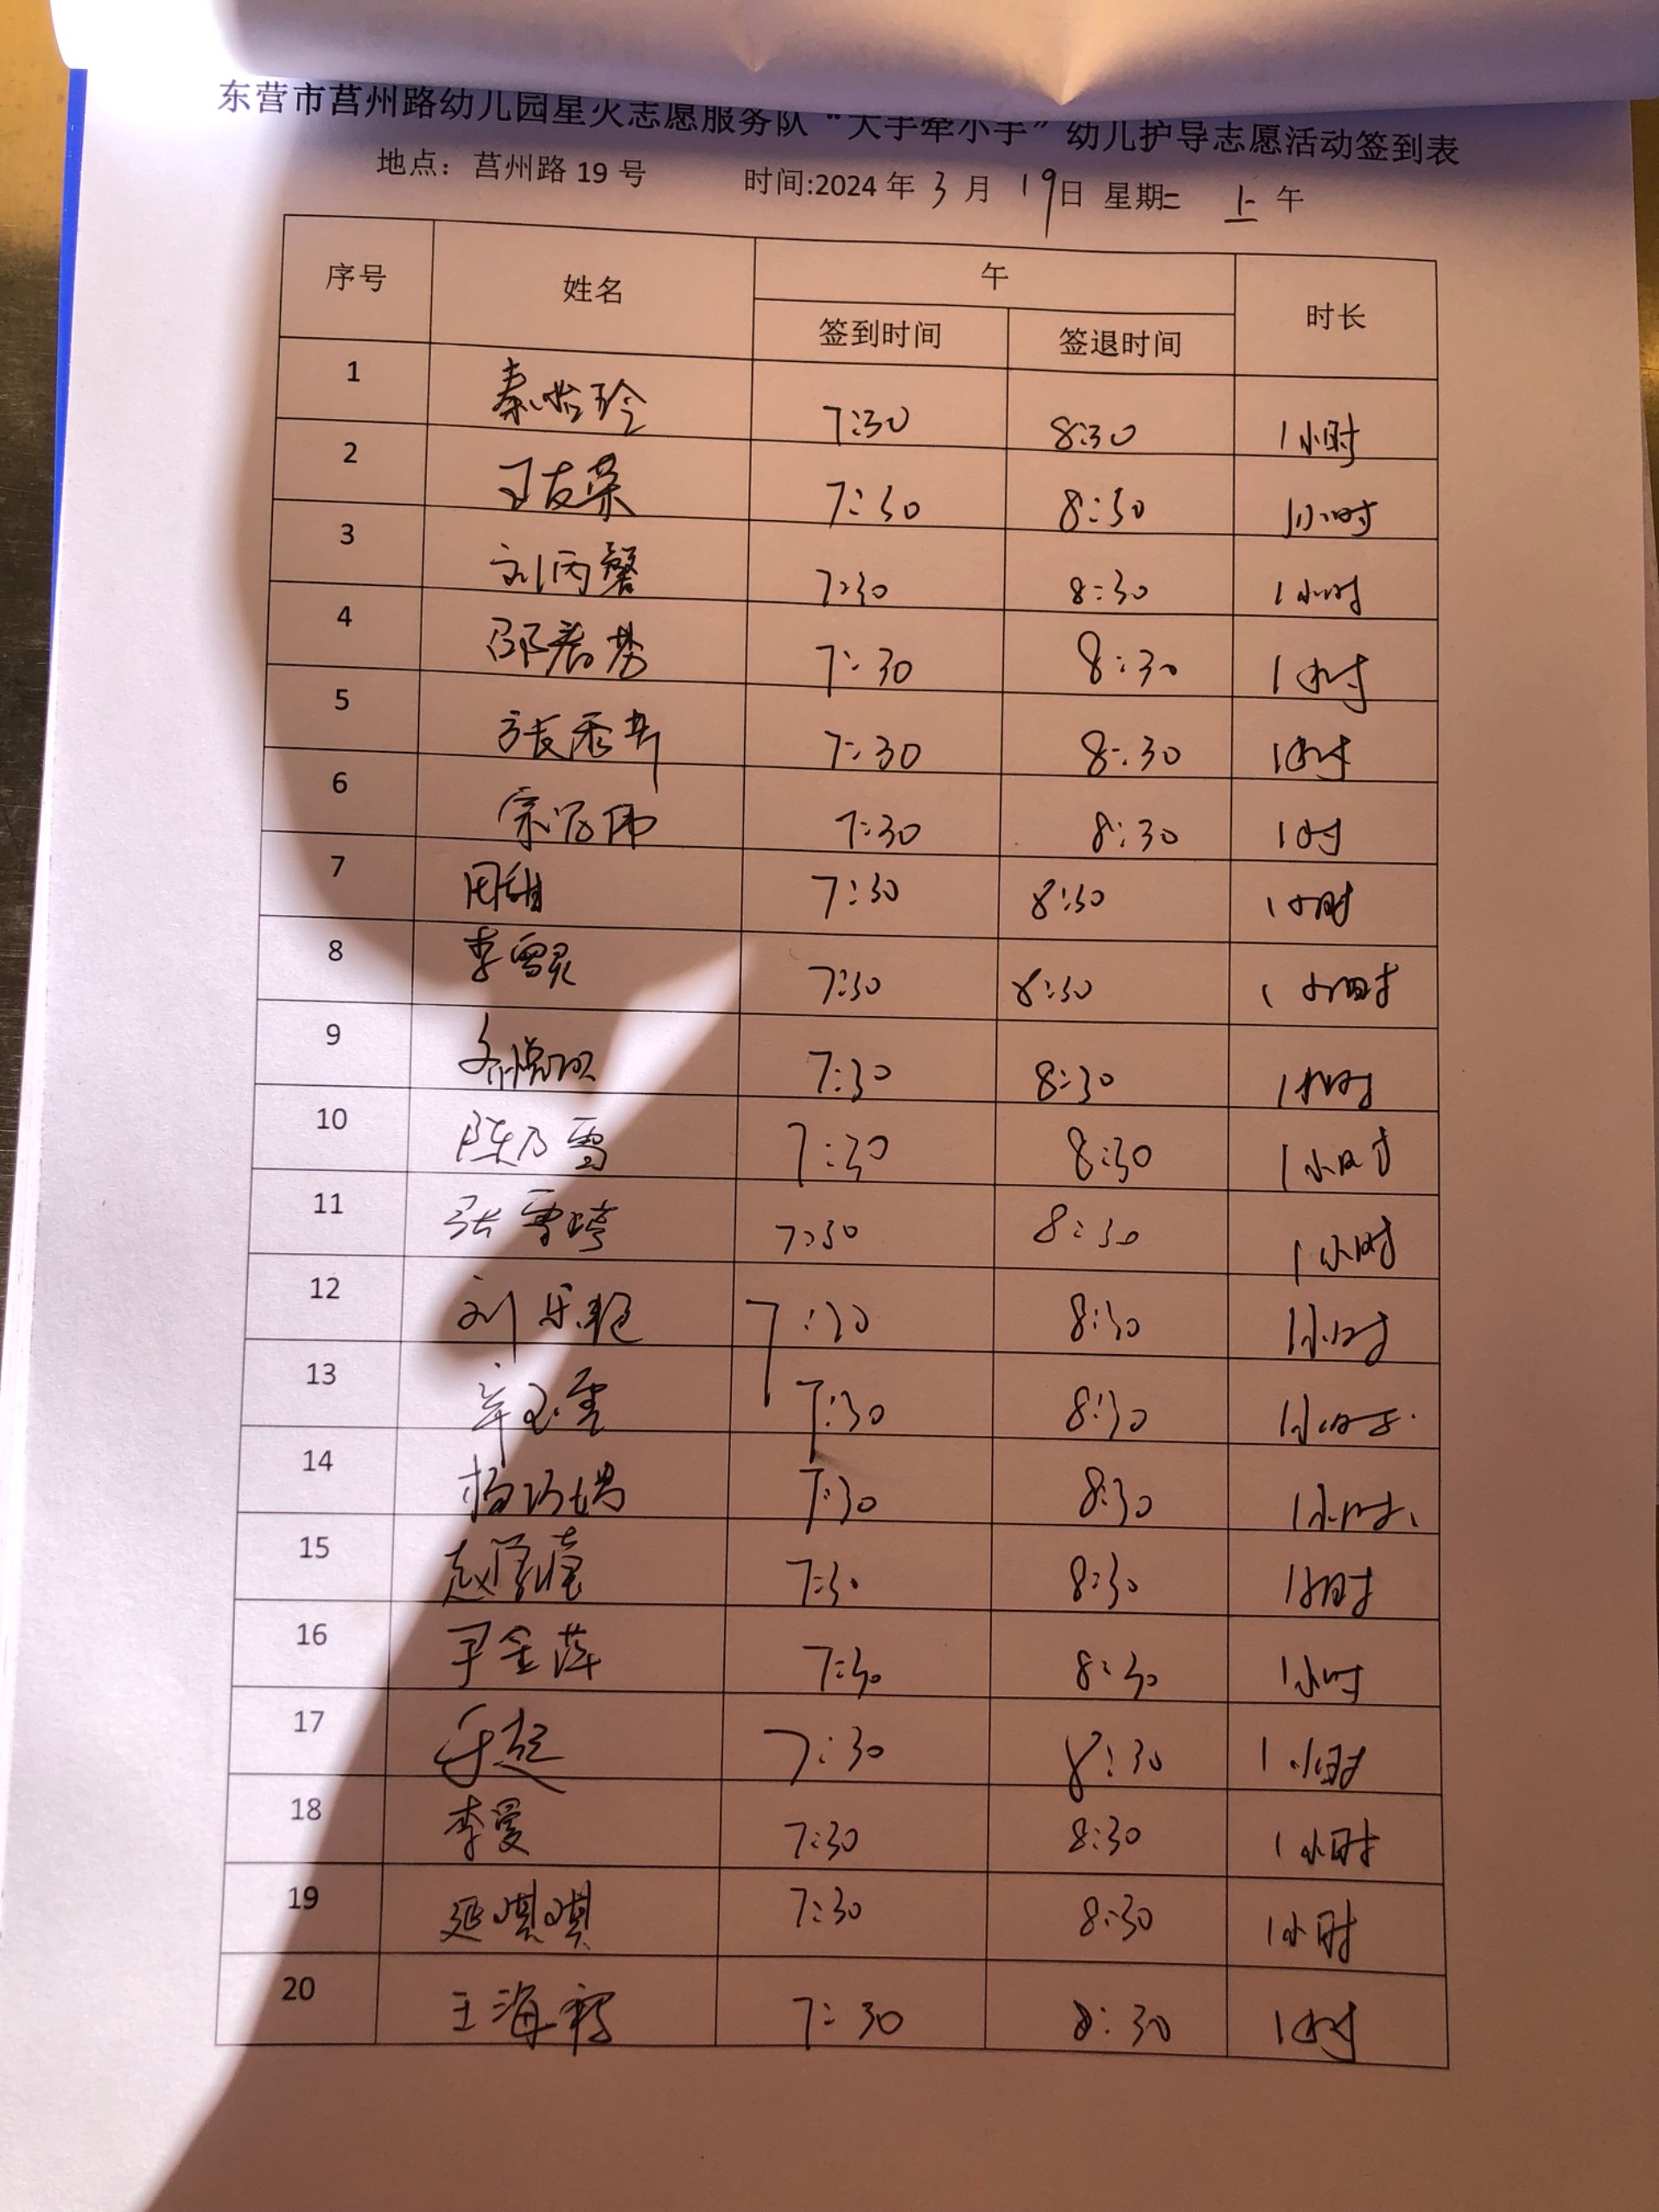 东营市莒州路幼儿园星火志愿服务队“大手牵小手”幼儿护导志愿活动签到表
地点：莒州路 19 号 时间:2024 年 3 月 19日 星期二 上 午
序号 姓名 午 时长
签到时间 签退时间
1 秦怡玲 7:30 8:30 1小时
2 王友荣 7:30 8:30 1小时
3 刘丙馨 7:30 8:30 1小时
4 邵 7:30 8:30 1小时
5 7:30 8:30 1小时
6 宗 伟 7:30 8:30 1时
7 周甜 7:30 8:30 1小时
8 李雪灵 7:30 8:30 1小时
9 7:30 8:30 1小时
10 陈乃雪 7:30 8:30 1小时
11 张雪婷 7:30 8:30 1小时
12 刘乐艳 7:30 8:30 1小时
13 辛玉雪 7:30 8:30 1小时
14 杨巧娟 7:30 8:30 1小时
15 赵 7:30 8:30 1小时
16 尹金萍 7:30 8:30 1小时
17 于超 7:30 8:30 1小时
18 李曼 7:30 8:30 1小时
19 延琪琪 7:30 8:30 1小时
20 王海 7:30 8:30 1小时